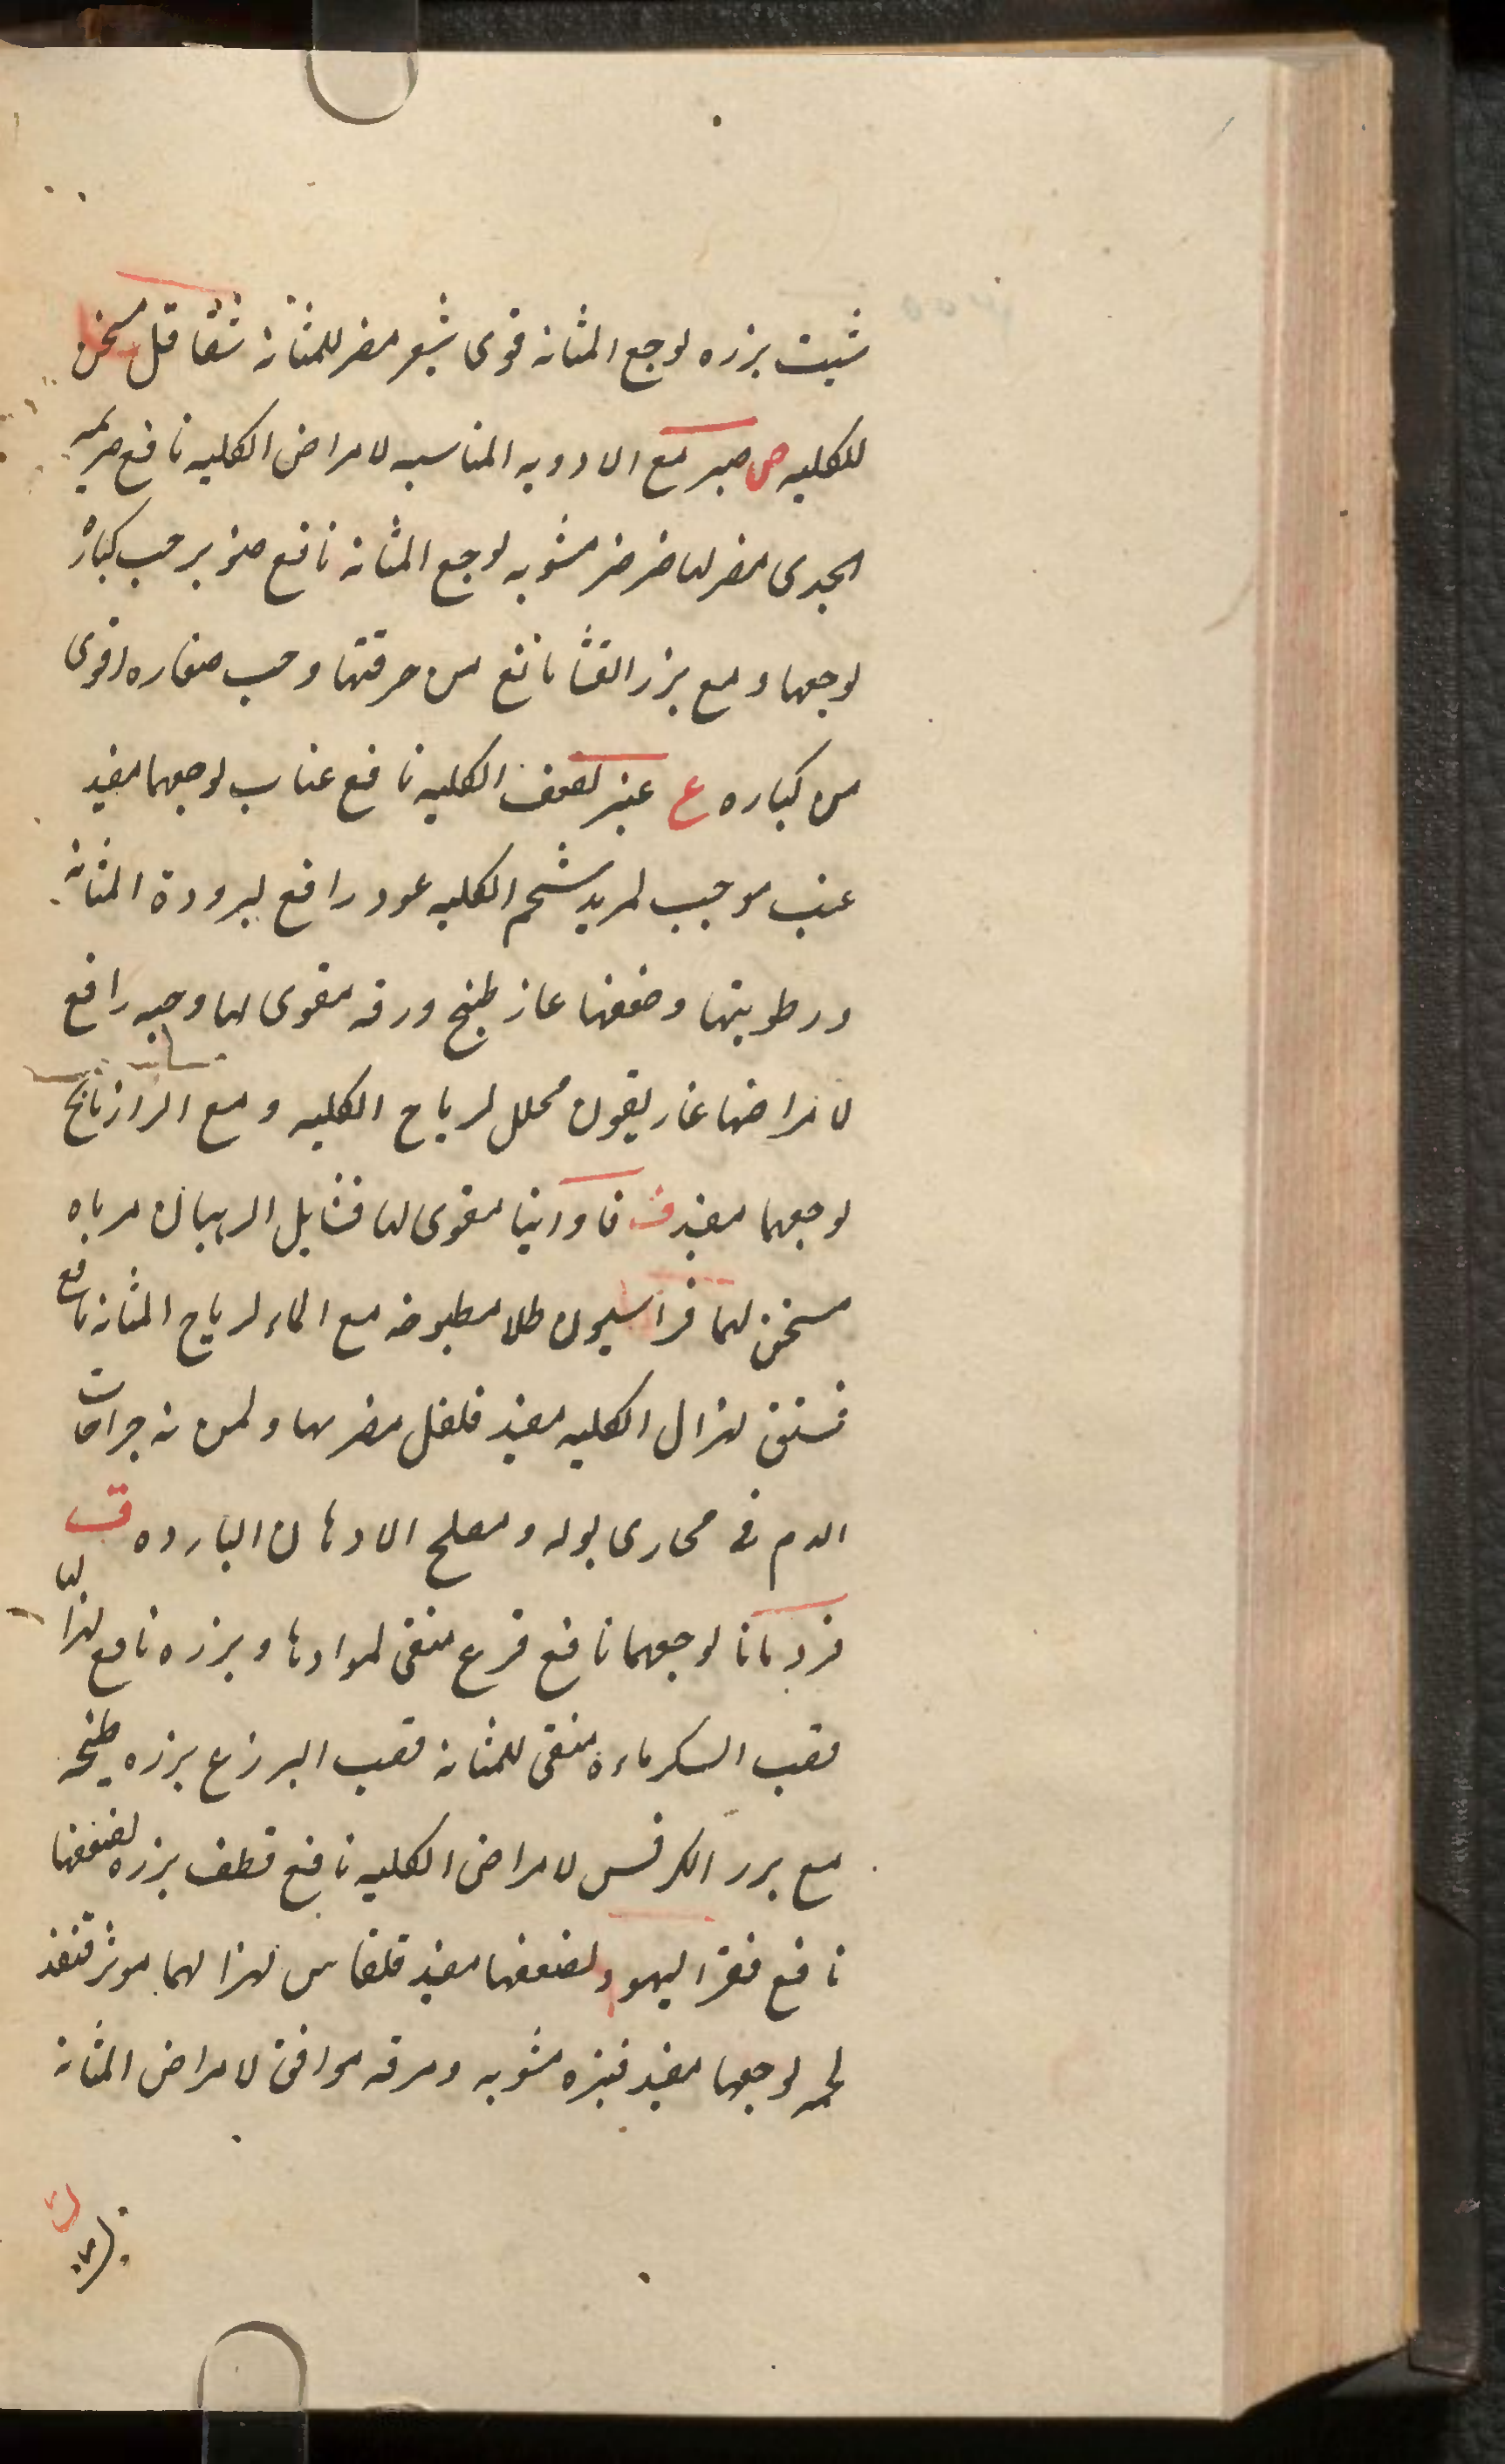 شبت بزره لوجع المثانه قوى شعير مضر للمثانة شقاقل مسخن
للكليه ص صبر مع الادويه المناسبه لامراض الكليه نافع
الجدى مضر لها مشويه لوجع المثانه نافع صنوبر حب كباره
لوجعها و مع بزر القثا نافع من حرقتها وحب صغاره اقوى
من كباره ع عنبر لضعف الكليه نافع عناب لوجعها مفيد
عنب موجب لمزيد شحم الكليه عود رافع لبرودة المثانه
ورطوبتها وضعفها غار طبخ ورقه مقوى لها وحبه رافع
لامراضها غاريقون محلل لرياح الكليه و مع الرازيانج
لوجعها مفيد ف فاوانيا مقوى لها مرباه
مسخن لهما فراسيون طلا مطبوخه مع الماء لرياح المثانه نافع
فستق لهزال الكليه مفيد فلفل مضر بها ولمن به جراحات
الدم فى مجارى بوله ومصلح الادهان البارده ق
قردمانا لوجعهما نافع قرع منقى لموادها وبزره نافع لهزالها
قصب السكر ماءه منقى للمثانه قصب بزره طبخه
مع بزر الكرفس لامراض الكليه نافع قطف بزره لضعفها
نافع قفر اليهود لضعفها مفيد قلقاس لهزالهما موثر قنفذ
لحمه لوجعها مفيد قنبره مشويه ومرقه موافق لامراض المثانه